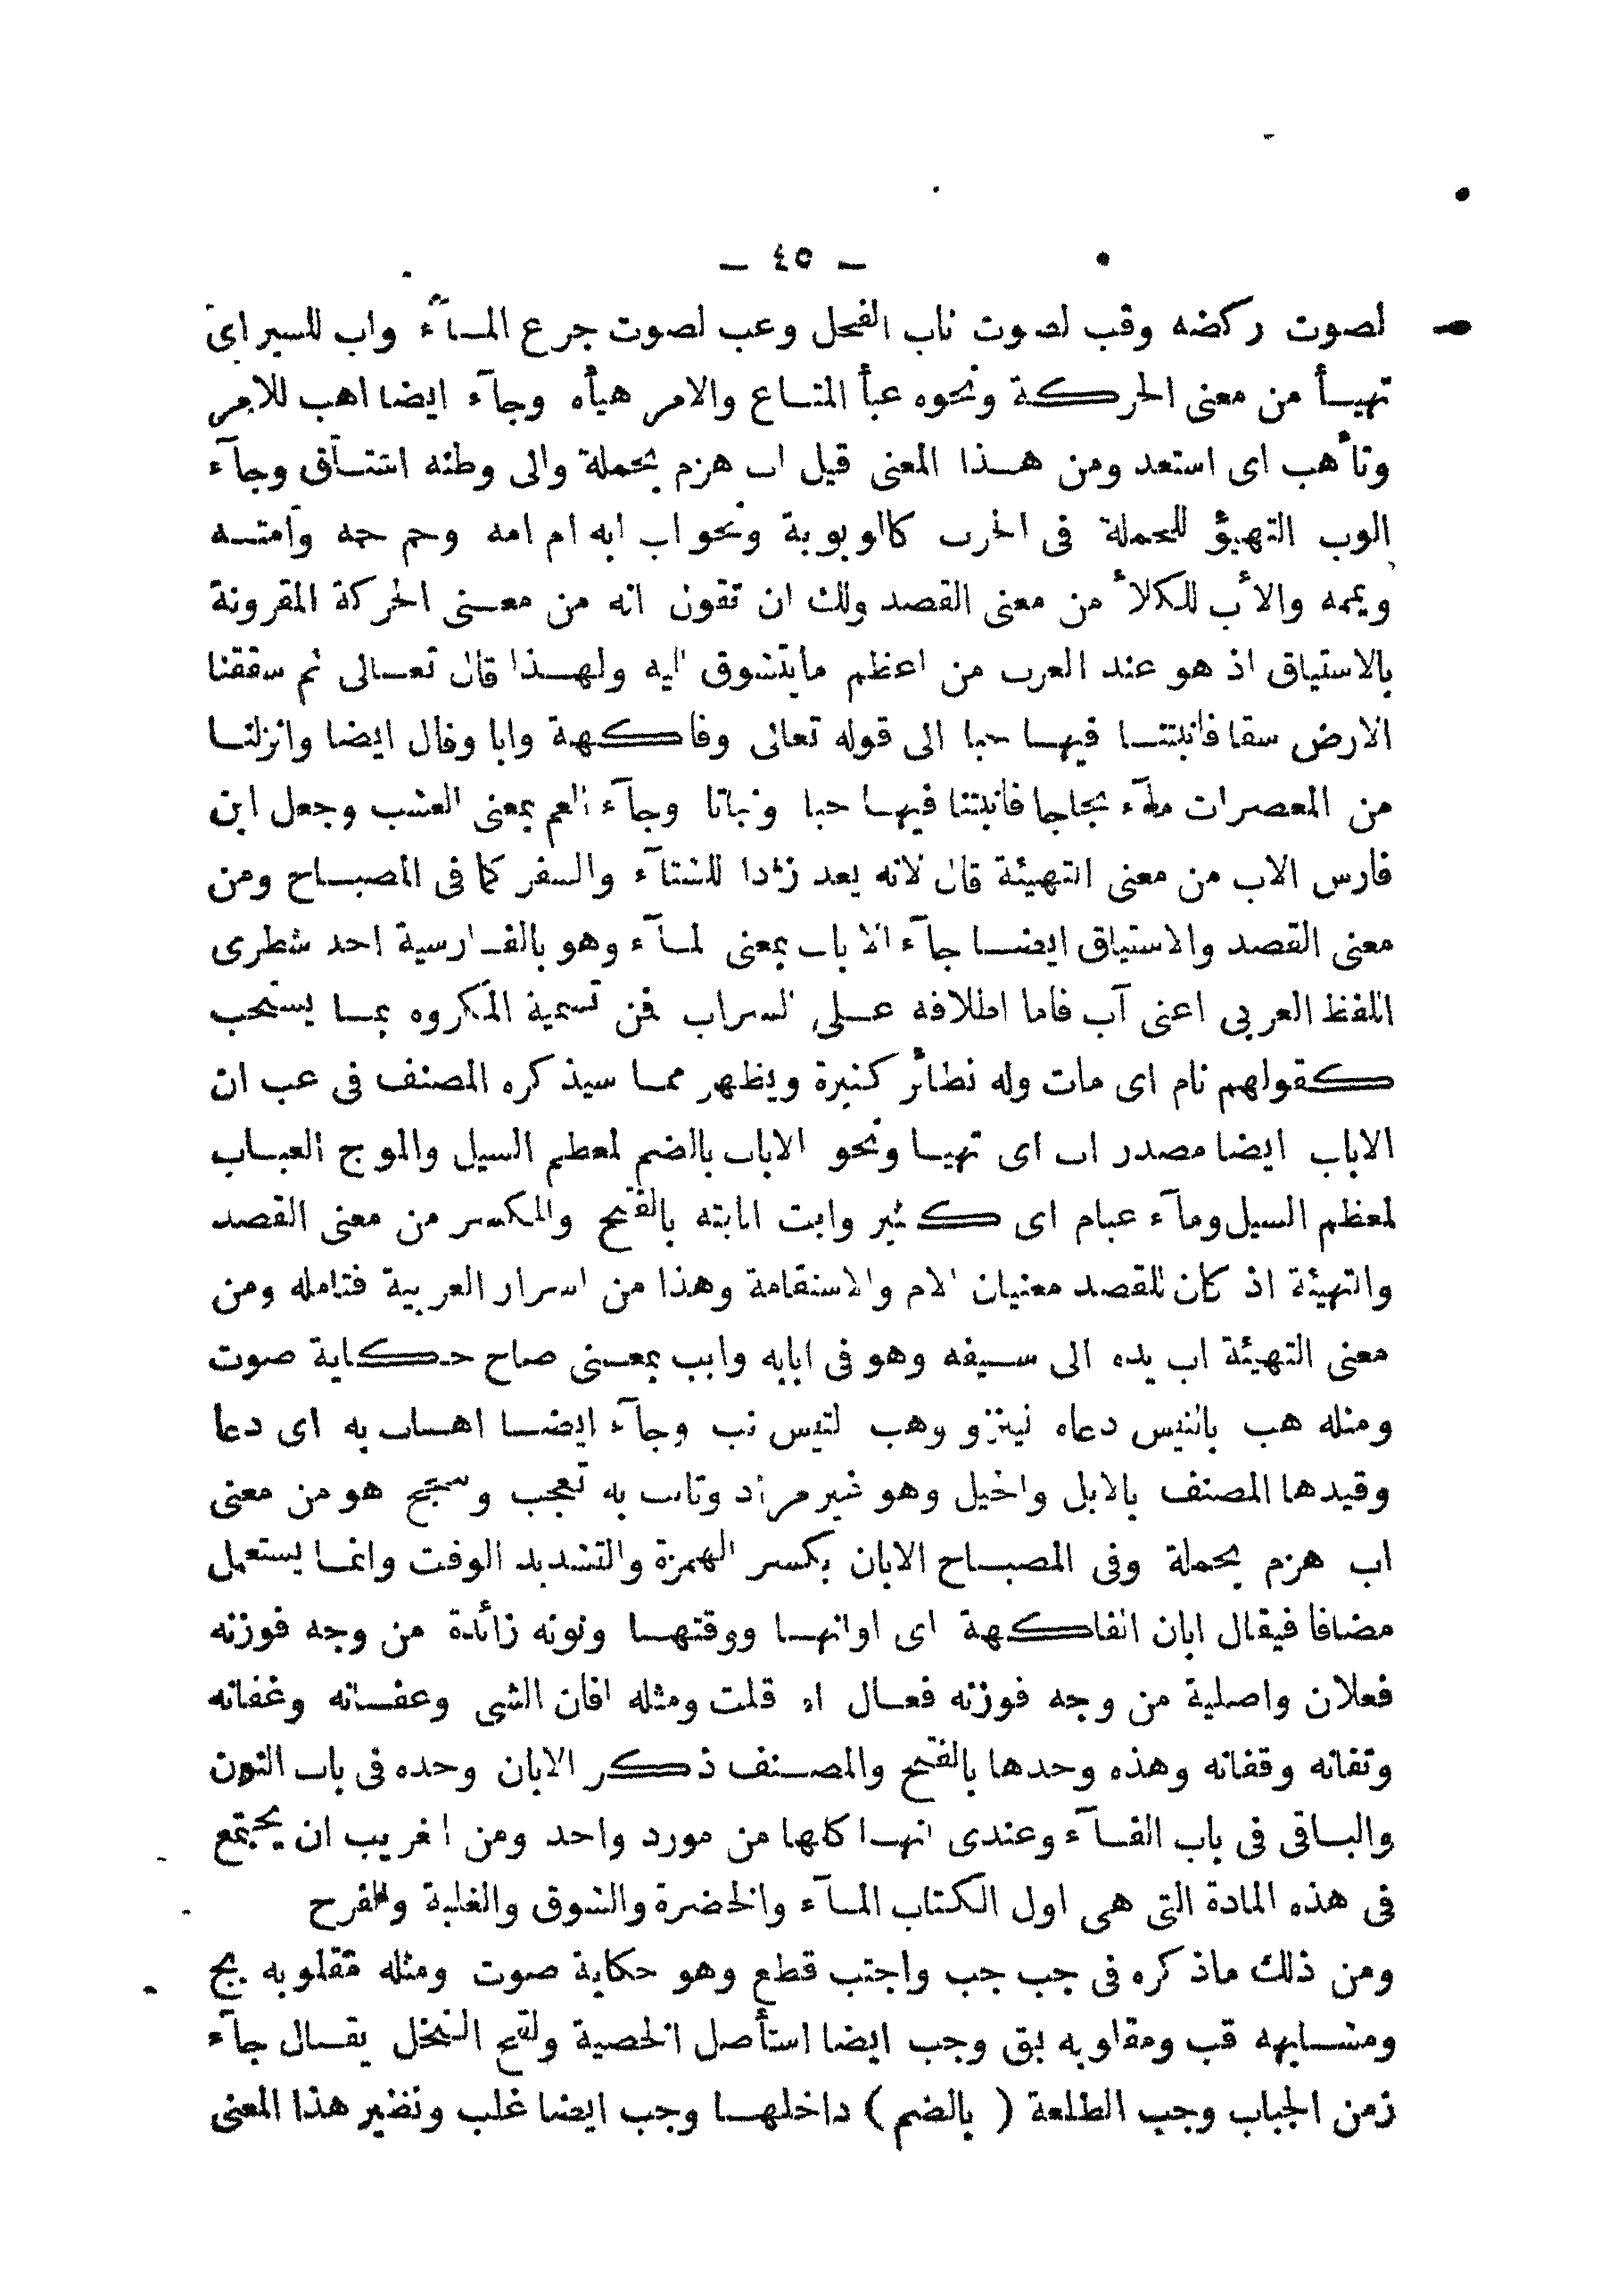 — ٤٥ —
لصوت ركضه وقب لصوت ناب الفحل وعب لصوت جرع المـآء واب للسير اى
تهيـأ من معنى الحركة ونحوه عبأ المتـاع والامر هيأه وجآء ايضا اهب للامر
وتأهب اى استعد ومن هـذا المعنى قيل اب هزم بحملة والى وطنه اشتـاق وجآء
الوب التهيؤ للحملة فى الحرب كالوبوبة ونحو اب ابه ام امه وحم حمه وامتـه
ويممه والأب للكلأ من معنى القصد ولك ان تقول انه من معـنى الحركة المقرونة
بالاستياق اذ هو عند العرب من اعظم مايتشوق اليه ولهـذا قال تعـالى ثم شققنا
الارض شقا فأنبتنـا فيهـا حبا الى قوله تعالى وفاكهة وابا وقال ايضا وانزلنـا
من المعصرات مآء ثجاجا فأنبتنا فيهـا حبا ونباتا وجآء العم بمعنى العشب وجعل ابن
فارس الاب من معنى التهيئة قال لانه يعد زادا للشتآء والسفر كما فى المصبـاح ومن
معنى القصد والاستياق ايضـا جآء الاباب بمعنى المـآء وهو بالفـارسية احد شطرى
اللفظ العربى اعنى آب فاما اطلاقه عـلى السراب فمن تسمية المكروه بمـا يستحب
كقولهم نام اى مات وله نظائر كثيرة ويظهر ممـا سيذكره المصنف فى عب ان
الاباب ايضا مصدر اب اى تهيـا ونحو الاباب بالضم لمعظم السيل والموج العبـاب
لمعظم السيل ومآء عبام اى كثير وابت ابابته بالفتح والكسر من معنى القصد
والتهيئة اذ كان للقصد معنيان الام والاستقامة وهذا من اسرار العربية فتامله ومن
معنى التهيئة اب يده الى سـيفه وهو فى ابابه وابب بمعـنى صاح حـكاية صوت
ومثله هب بالتيس دعاه لينزو وهب التيس نب وجآء ايضـا اهـاب به اى دعا
وقيدها المصنف بالابل والخيل وهو غير مراد وتابب به تعجب وتبجح هو من معنى
اب هزم بحملة وفى المصبـاح الابان بكسر الهمزة والتشديد الوقت وانمـا يستعمل
مضافا فيقال ابان الفاكهة اى اوانهـا ووقتهـا ونونه زائدة من وجه فوزنه
فعلان واصلية من وجه فوزنه فعـال اه قلت ومثله افان الشى وعفـانه وغفانه
وتفانه وقفانه وهذه وحدها بالفتح والمصـنف ذكر الابان وحده فى باب النون
والبـاقى فى باب الفـآء وعندى انهـا كلها من مورد واحد ومن الغريب ان يجتمع
فى هذه المادة التى هى اول الكتاب المـآء والخضرة والشوق والغلبة والفرح
ومن ذلك ماذكره فى جب جب واجتب قطع وهو حكاية صوت ومثله مقلوبه بج
ومشـابهه قب ومقلوبه بق وجب ايضا استأصل الخصية ولقح النخل يقـال جآء
زمن الجباب وجب الطلعة ( بالضم ) داخلهـا وجب ايضا غلب ونظير هذا المعنى